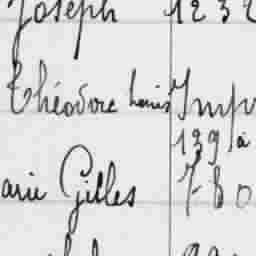 Joseph 1232
Théodore Louis Impr
139 à
arie Gilles 7-80